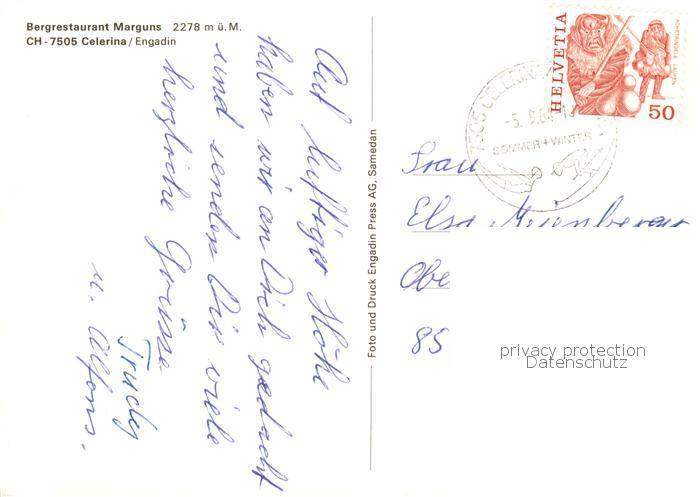 Bergrestaurant Marguns 2278 m ü. M.
CH - 7505 Celerina / Engadin
Auf luftiger Höhe
haben wir an Dich gedacht
und senden Dir viele
herzliche Grüsse.
Trudy
u. Alfons.
Foto und Druck Engadin Press AG, Samedan
HELVETIA
ACHETRINGELE LAUPEN
50
7505 CELERINA
-5. 9.84
SOMMER + WINTER
Frau
Elsa Meienberger
Obe
85
privacy protection
Datenschutz